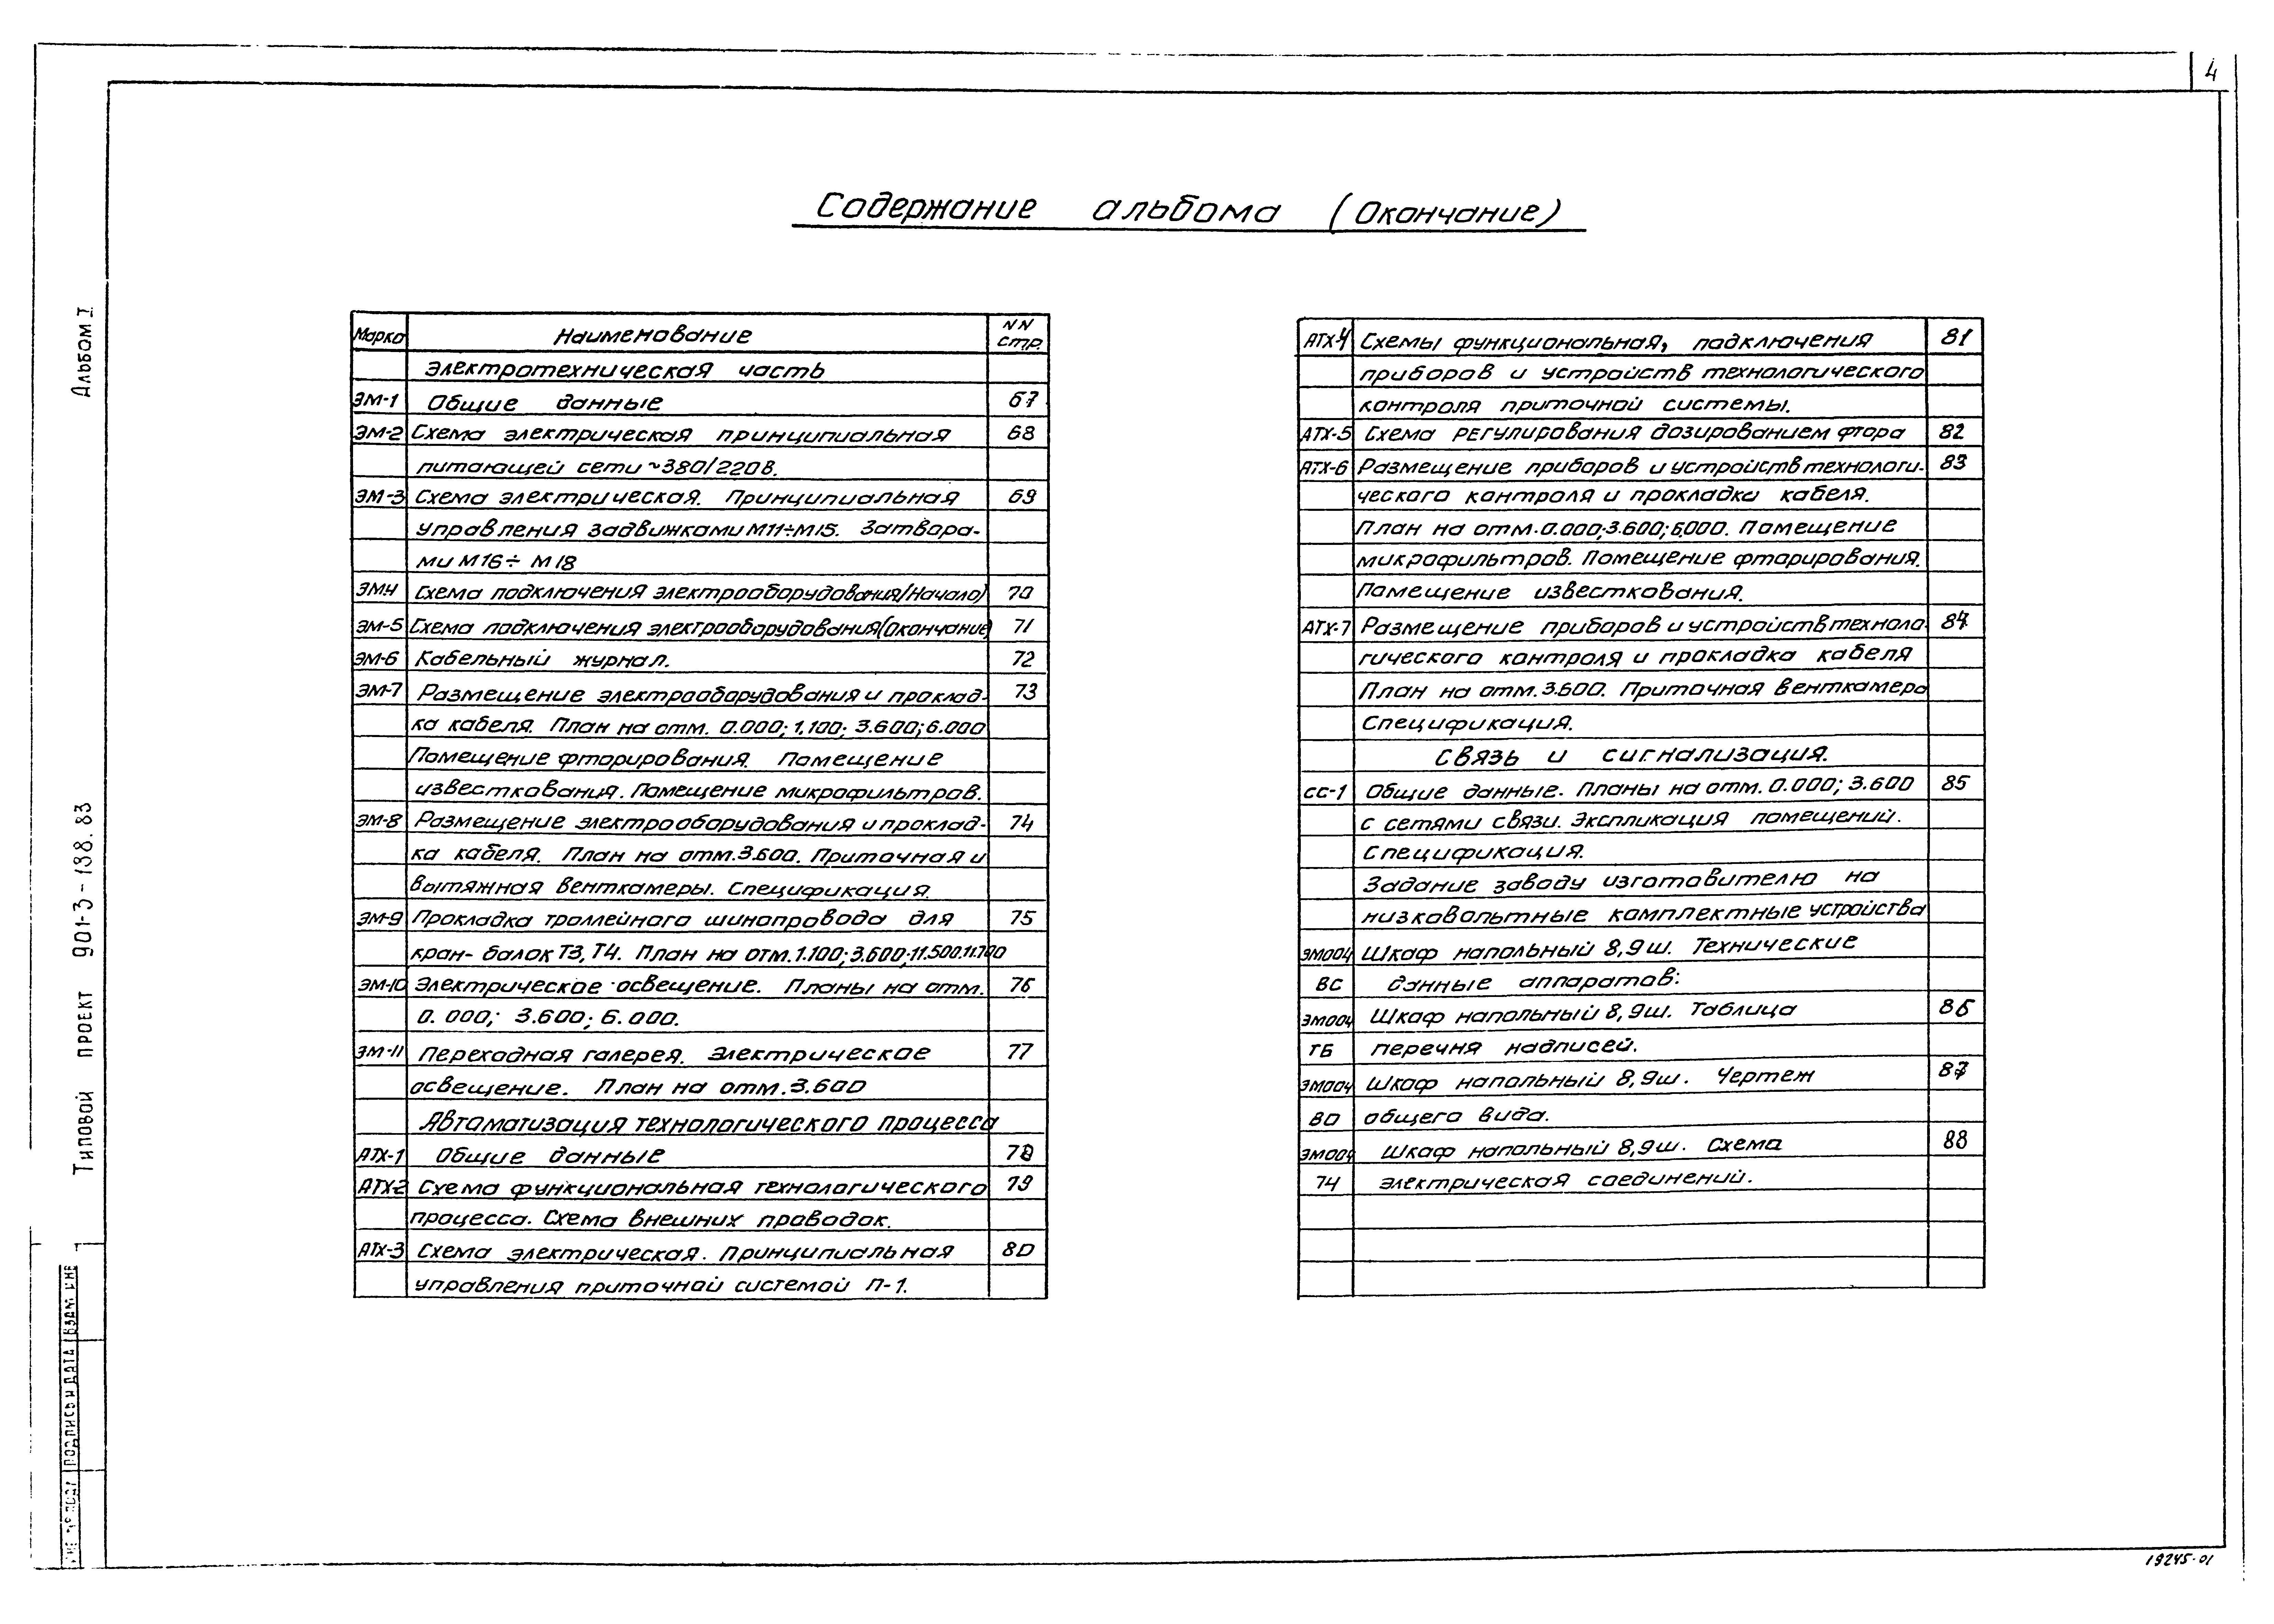 4
Содержание альбома (Окончание)
Альбом I
Типовой проект 901-3-138.83
Марка Наименование NN стр.
Электротехническая часть
ЭМ-1 Общие данные 67
ЭМ-2 Схема электрическая принципиальная 68
питающей сети ~380/220В.
ЭМ-3 Схема электрическая. Принципиальная 69
управления задвижками М11÷М15. Затвора-
ми М16÷М18
ЭМ4 Схема подключения электрооборудования (Начало) 70
ЭМ-5 Схема подключения электрооборудования (Окончание) 71
ЭМ-6 Кабельный журнал. 72
ЭМ-7 Размещение электрооборудования и проклад- 73
ка кабеля. План на отм. 0.000; 1.100; 3.600; 6.000
Помещение фторирования. Помещение
известкования. Помещение микрофильтров.
ЭМ-8 Размещение электрооборудования и проклад- 74
ка кабеля. План на отм. 3.600. Приточная и
вытяжная венткамеры. Спецификация.
ЭМ-9 Прокладка троллейного шинопровода для 75
кран-балок Т3, Т4. План на отм. 1.100; 3.600; 11.500. 11.700
ЭМ-10 Электрическое освещение. Планы на отм. 76
0.000; 3.600; 6.000.
ЭМ-11 Переходная галерея. Электрическое 77
освещение. План на отм. 3.600
Автоматизация технологического процесса
АТХ-1 Общие данные 78
АТХ-2 Схема функциональная технологического 79
процесса. Схема внешних проводок.
АТХ-3 Схема электрическая. Принципиальная 80
управления приточной системой П-1.
АТХ-4 Схемы функциональная, подключения 81
приборов и устройств технологического
контроля приточной системы.
АТХ-5 Схема регулирования дозированием фтора 82
АТХ-6 Размещение приборов и устройств технологи- 83
ческого контроля и прокладка кабеля.
План на отм. 0.000; 3.600; 6,000. Помещение
микрофильтров. Помещение фторирования.
Помещение известкования.
АТХ-7 Размещение приборов и устройств техноло- 84
гического контроля и прокладка кабеля
План на отм. 3.600. Приточная венткамера
Спецификация.
Связь и сигнализация.
СС-1 Общие данные. Планы на отм. 0.000; 3.600 85
с сетями связи. Экспликация помещений.
Спецификация.
Задание заводу изготовителю на
низковольтные комплектные устройства
ЭМ004 Шкаф напольный 8,9ш. Технические
ВС данные аппаратов:
ЭМ004 Шкаф напольный 8,9ш. Таблица 86
ТБ перечня надписей.
ЭМ004 Шкаф напольный 8,9ш. Чертеж 87
ВО общего вида.
ЭМ004 Шкаф напольный 8,9ш. Схема 88
74 электрическая соединений.
подпись и дата
19245-01